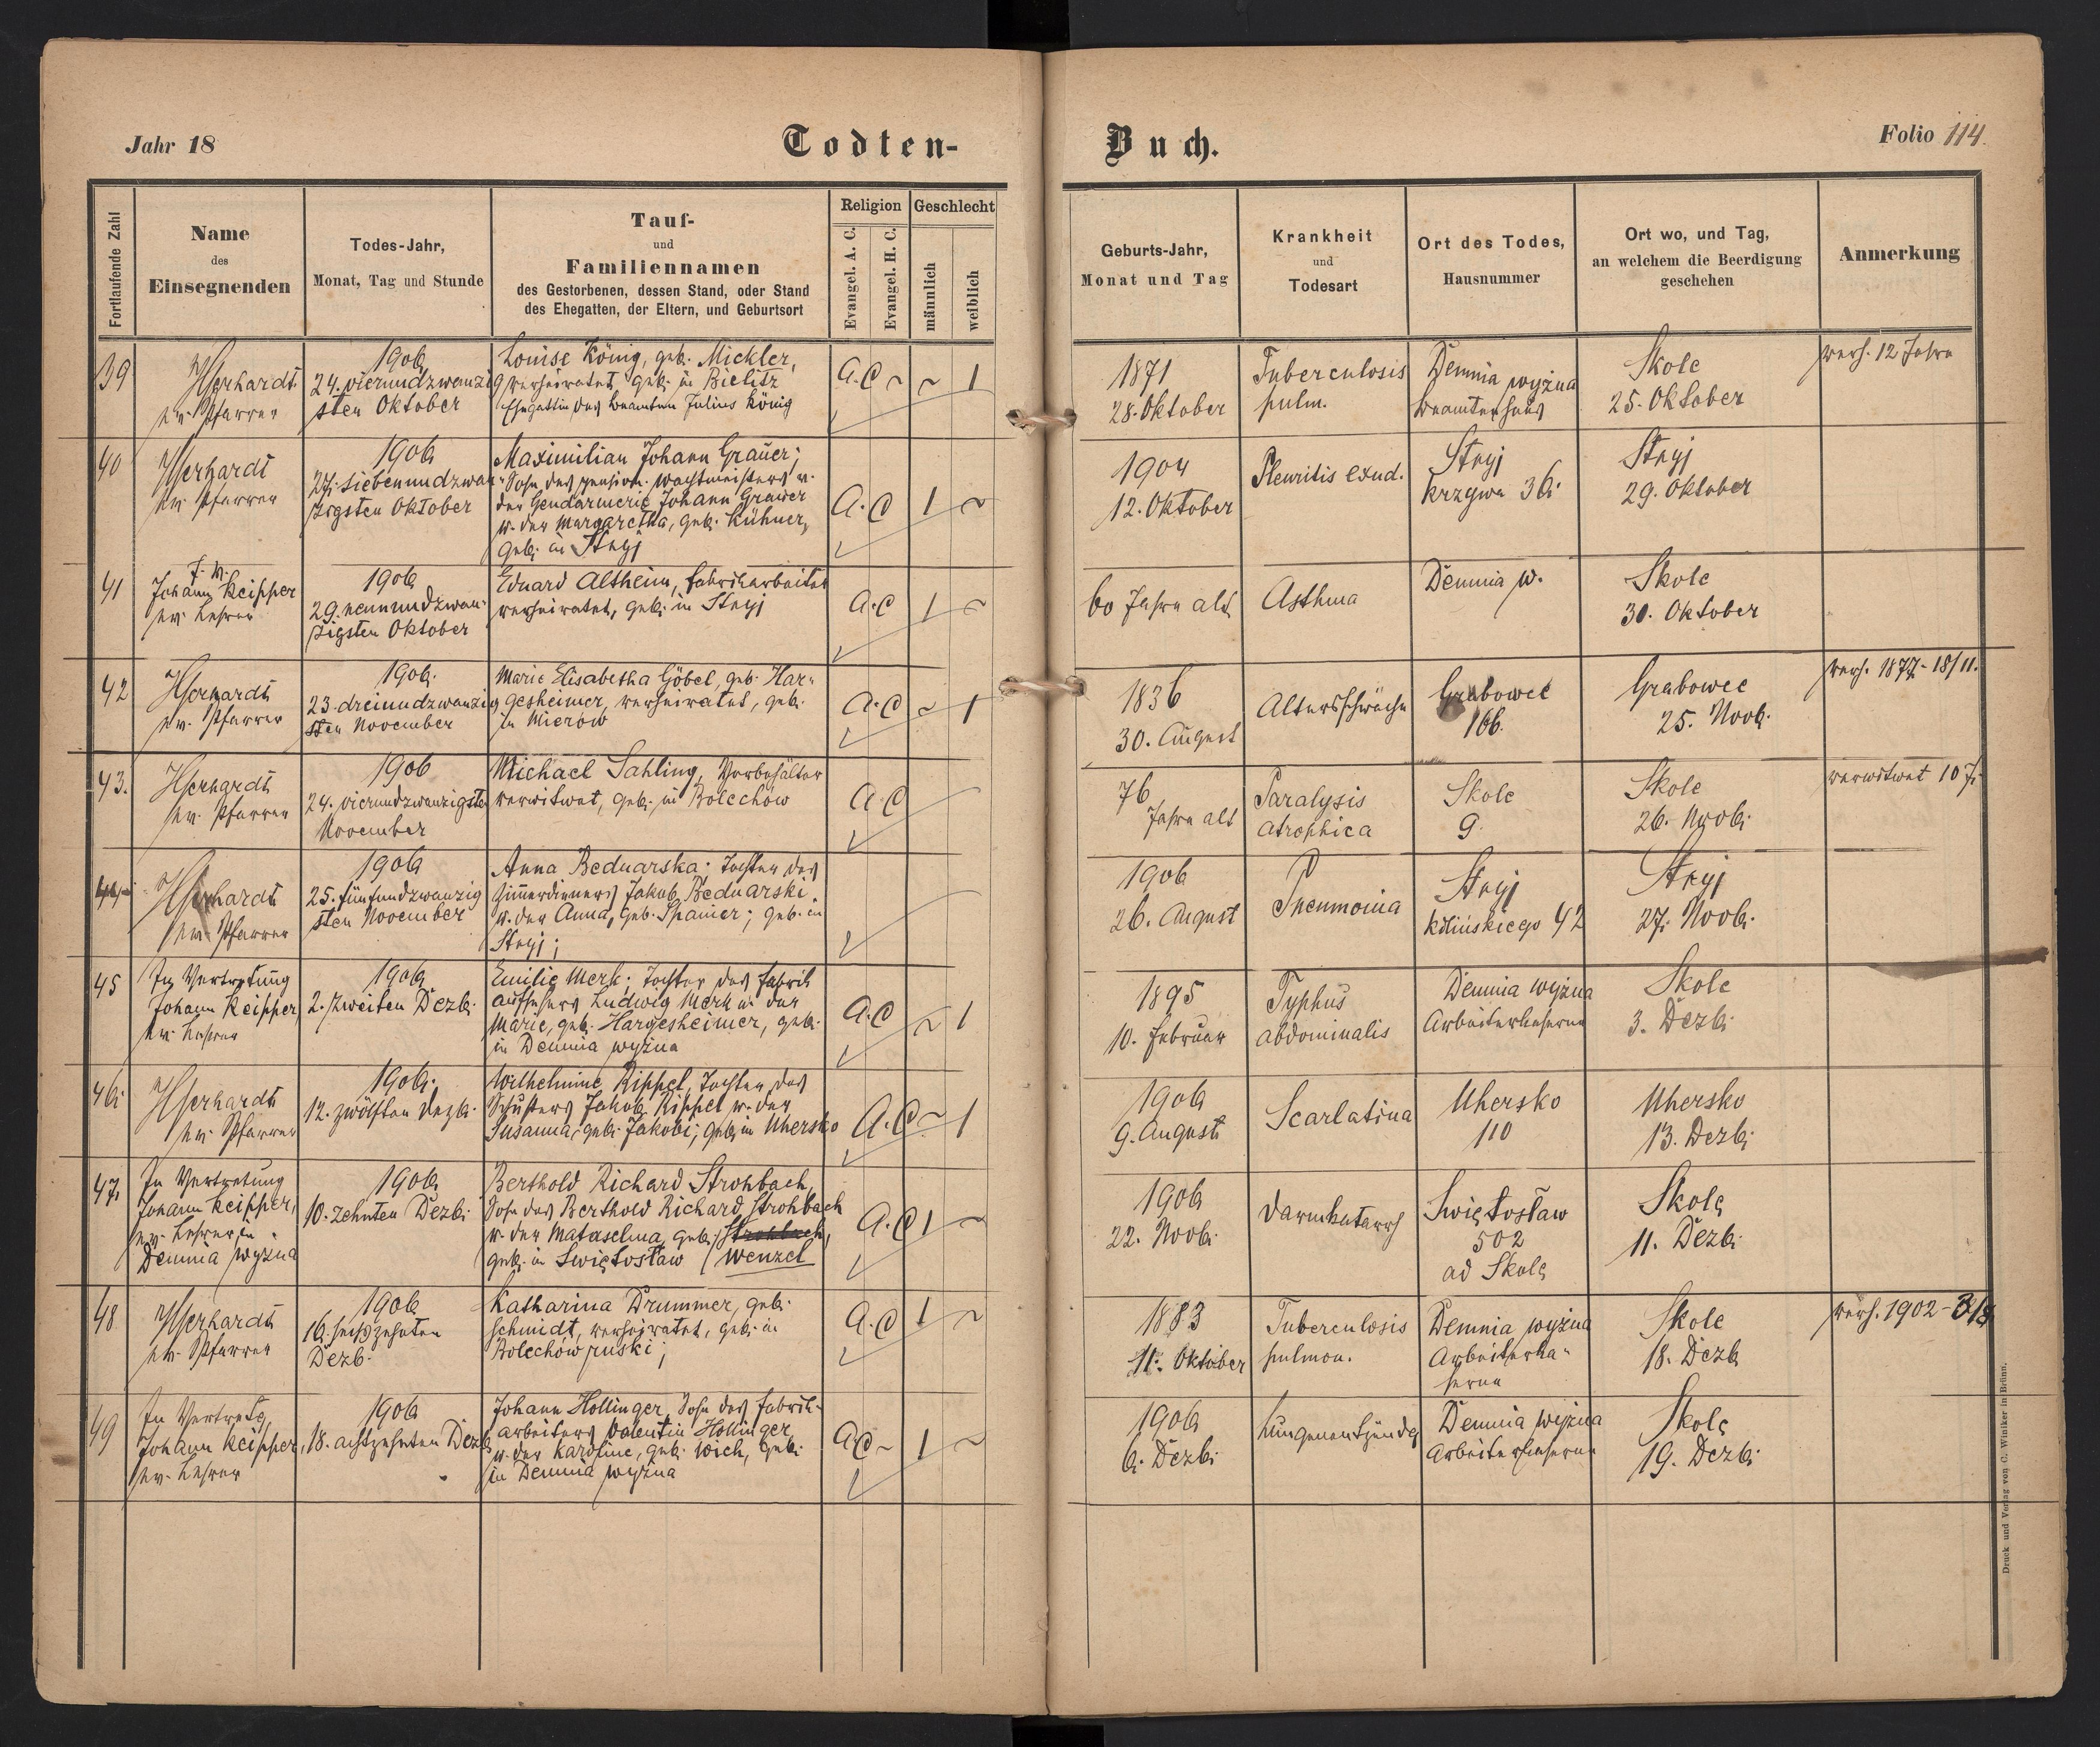 Jahr 18
Todten-
Buch.
Folio 114.
Fortlaufende Zahl
Name
des
Einsegnenden
Todes-Jahr,
Monat, Tag und Stunde
Tauf-
und
Familiennamen
des Gestorbenen, dessen Stand, oder Stand
des Ehegatten, der Eltern, und Geburtsort
Religion
Evangel. A. C.
Evangel. H. C.
Geschlecht
männlich
weiblich
Geburts-Jahr,
Monat und Tag
Krankheit
und
Todesart
Ort des Todes,
Hausnummer
Ort wo, und Tag,
an welchem die Beerdigung
geschehen
Anmerkung
39
ev. Pfarrer
1906
24. vierundzwanzig
sten Oktober
Louise König, geb. Mickler,
verheiratet, geb. in Bielitz
Ehegattin des Beamten Julius König
A.C ~ ~ 1
1871
28. Oktober
Tuberculosis
pulm.
Demnia wyżna
Beamtenhaus
Skole
25. Oktober
verh. 12 Jahre
40
ev. Pfarrer
1906
27. siebenundzwan-
zigsten Oktober
Maximilian Johann Grauer;
Sohn des pension. Wachtmeisters v.
der Gendarmerie Johann Grauer
u. der Margaretha, geb. Kühner,
geb. in Stryj
A.C 1 ~
1904
12. Oktober
Pleuritis exud.
Stryj
Krzywa 36.
Stryj
29. Oktober
41
J. V.
Johann Keipper
ev. Lehrer
1906
29. neunundzwan-
zigsten Oktober
Eduard Altheim, Fabriksarbeiter
verheiratet, geb. in Stryj
A.C 1 ~
60 Jahre alt
Asthma
Demnia w.
Skole
30. Oktober
42
ev. Pfarrer
1906.
23. dreiundzwanzig
sten November
Marie Elisabetha Göbel, geb. Har-
gesheimer, verheiratet, geb.
in
A.C ~ 1
1836
30. August
Altersschwäche
Grabowce
166.
Grabowce
25. Novb.
verh. 1877 - 18/11.
43.
ev. Pfarrer
1906
24. vierundzwanzigsten
November
Michael Sahling,
verwitwet, geb. in Bolechów
A.C
76
Jahre alt
Paralysis
atrophica
Skole
9.
Skole
26. Novb.
verwitwet 10 J.
44
ev. Pfarrer
1906
25. fünfundzwanzig
sten November
Anna Bednarska; Tochter des
Zimmerdieners Jakob Bednarski
u. der Anna, geb. Spanier; geb. in
Stryj;
1906
26. August
Pneumonia
Stryj
Kilińskiego 42
Stryj
27. Novb.
45
In Vertretung
Johann Keipper,
ev. Lehrer
1906
2. zweiten Dezb.
Emilie Merk; Tochter des Fabrik
aufsehers Ludwig Merk u. der
Marie, geb. Hargesheimer, geb.
in Demnia wyżna
A.C ~ 1
1895
10. Februar
Typhus
abdominalis
Demnia wyżna
Arbeiterkaserne
Skole
3. Dezb.
46.
ev. Pfarrer
1906.
12. zwölften Dezb.
Wilhelmine Rippel, Tochter des
Schusters Jakob Rippel u. der
Susanna, geb. Jakobi; geb. in Uhersko
A.C ~ 1
1906
9. August
Scarlatina
Uhersko
110
Uhersko
13. Dezb.
47.
In Vertretung
Johann Keipper,
ev. Lehrer in
Demnia wyżna
1906
10. zehnten Dezb.
Berthold Richard Strohbach,
Sohn des Berthold Richard Strohbach
u. der geb. Strohbach,
geb. in Swiętosław (Wenzel
A.C 1 ~
1906
22. Novb.
Darmkatarrh
Swiętosław
502
ad Skole
Skole
11. Dezb.
48
ev. Pfarrer
1906
16. sechszehnten
Dezb.
Katharina Drummer, geb.
Schmidt, verheiratet, geb. in
Bolechów ruski;
A.C 1 ~
1883
11. Oktober
Tuberculosis
pulmon.
Demnia wyżna
Arbeiterka-
serne
Skole
18. Dezb
verh. 1902 -
49
In Vertretg
Johann Keipper,
ev. Lehrer
1906
18. achtzehnten Dezb.
Johann Hollinger, Sohn des Fabrik-
arbeiters Valentin Hollinger,
u. der Karoline, geb. Wich, geb.
in Demnia wyżna
A.C ~ 1 ~
1906
6. Dezb.
Lungenentzündg
Demnia wyżna
Arbeiterkaserne
Skole
19. Dezb.
Druck und Verlag von C. Winiker in Brünn.